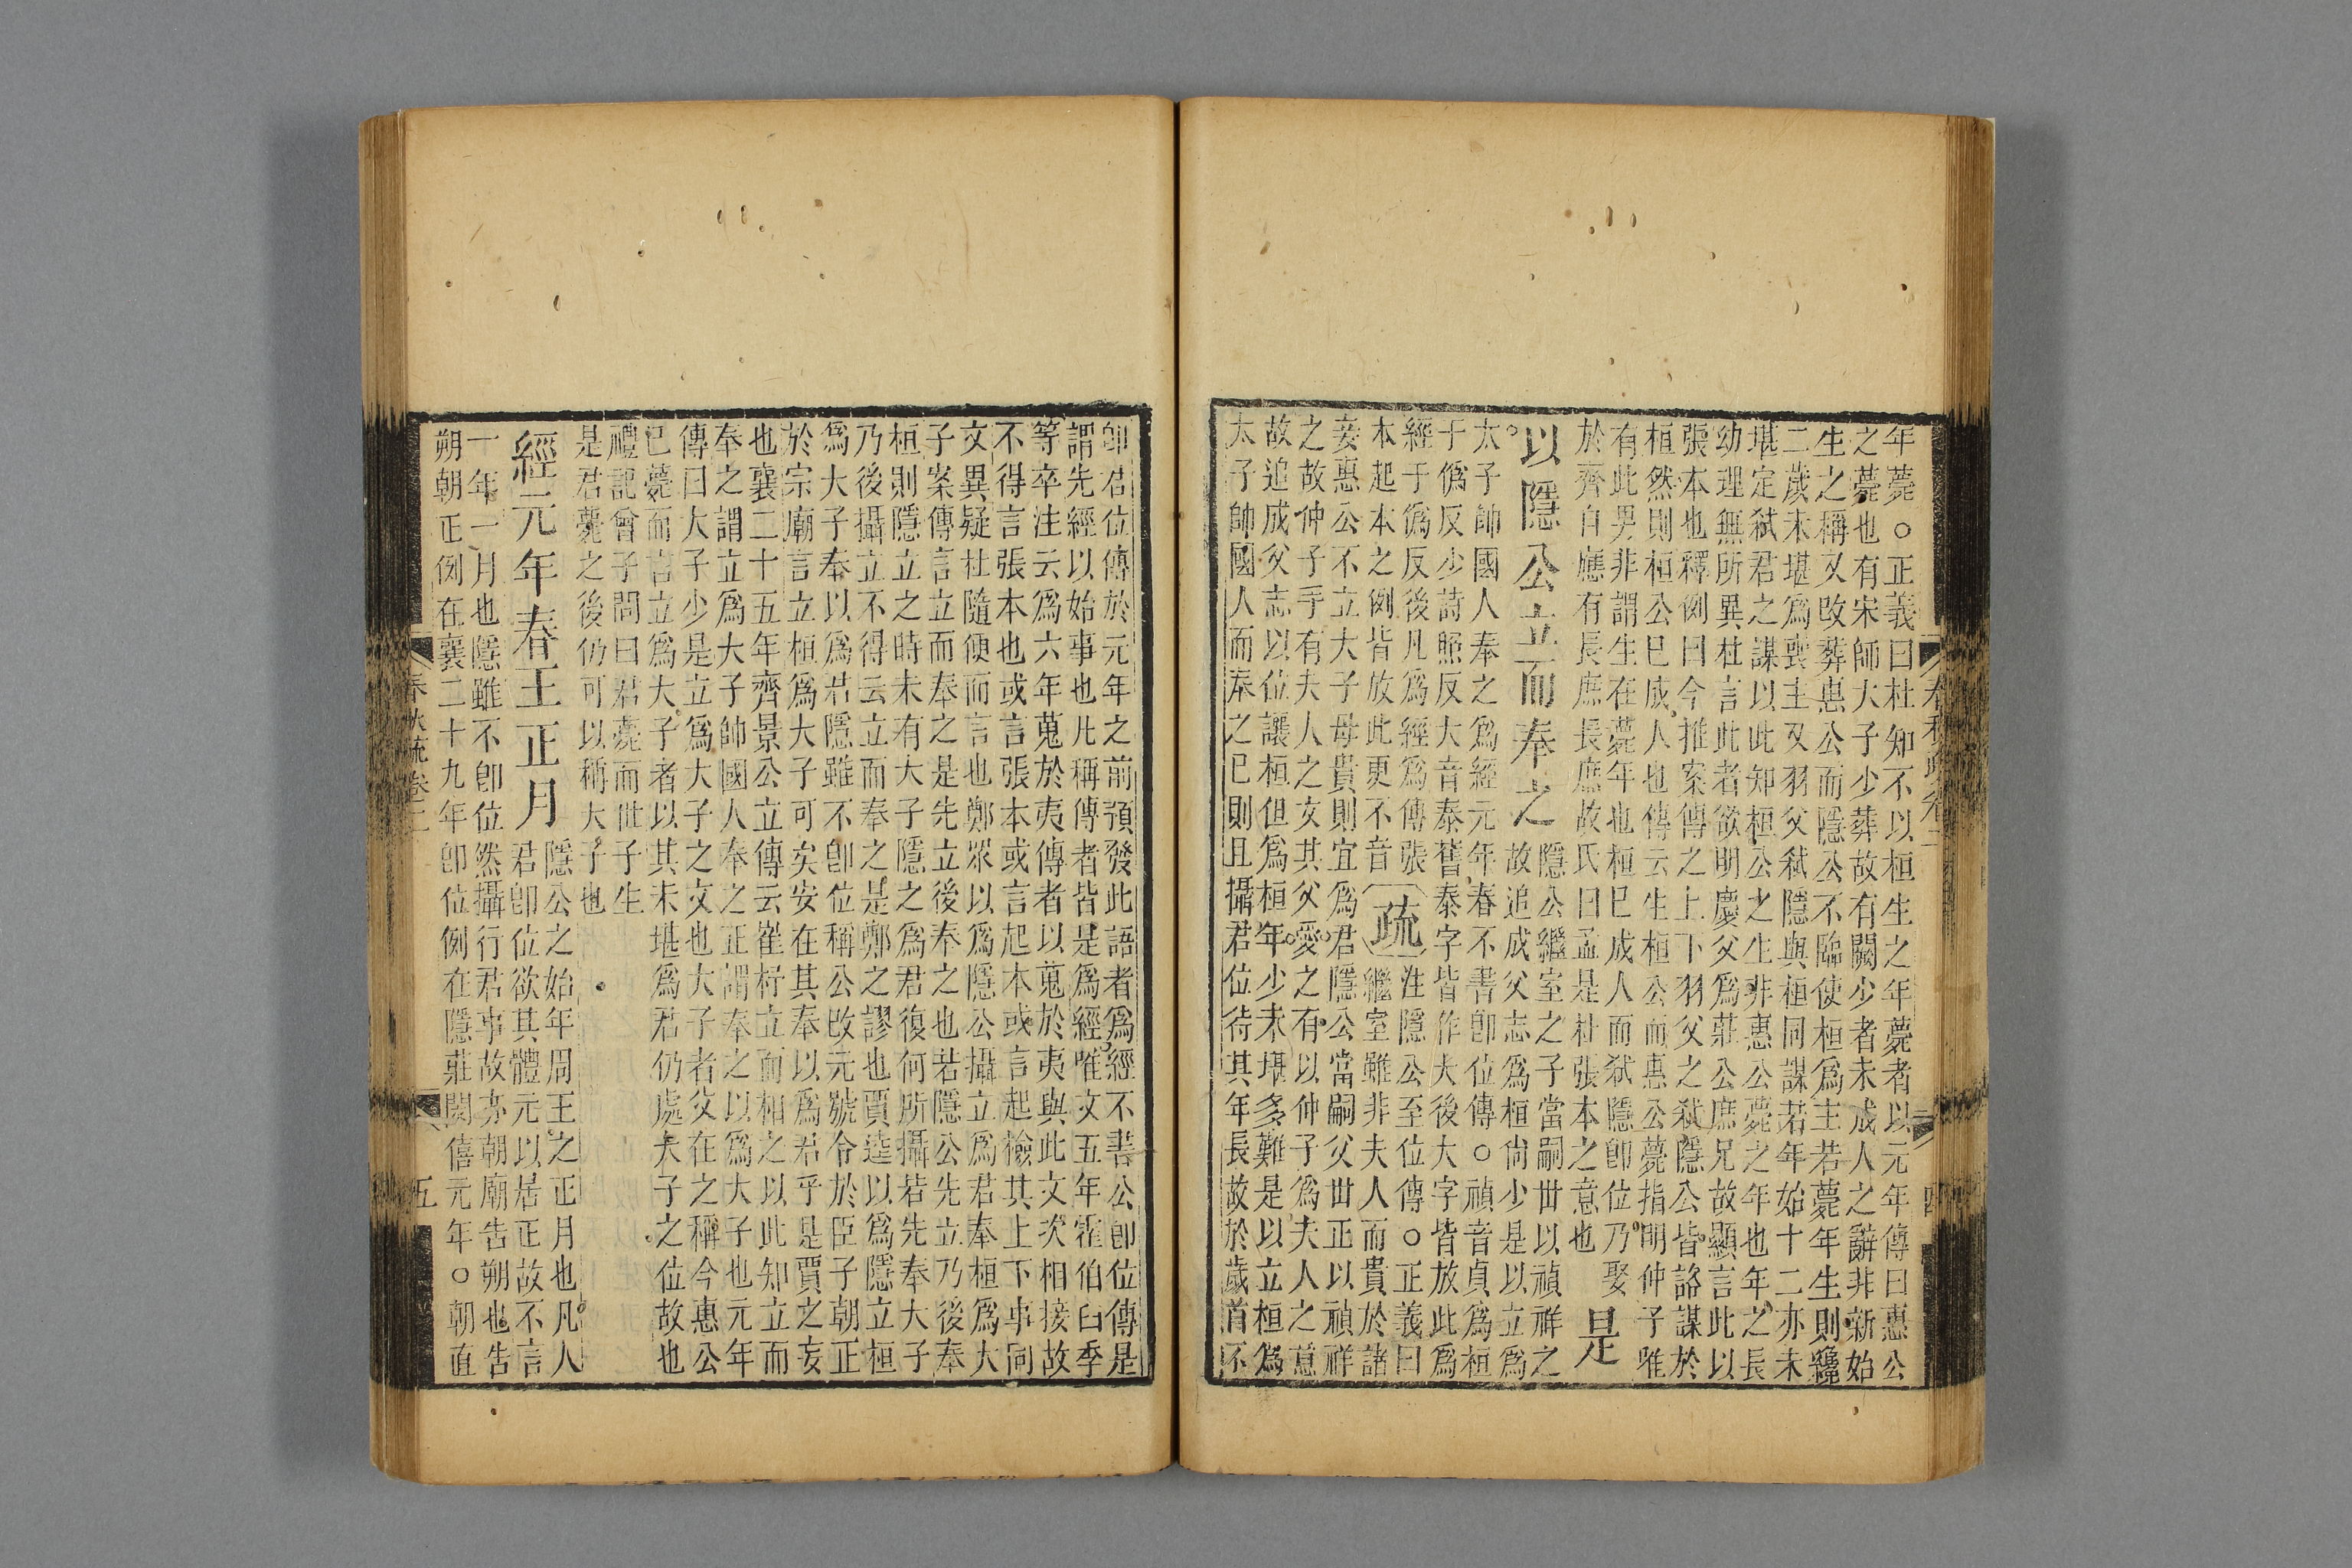 年薨○正義曰杜知不以桓生之年薨者以元年傳曰惠公
之薨也有宋師大子少葬故有闕少者未成人之辭非新始
生之稱又改葬惠公而隱公不臨使桓為主若薨年生則纔
二歲未堪為喪主又羽父弒隱與桓同謀若年始十二亦未
堪定弒君之謀以此知桓公之生非惠公薨之年也年之長
幼理無所異杜言此者欲明慶父為莊公庶兄故顯言此以
張本也釋例曰今推案傳之上下羽父之弒隱公皆諮謀於
桓然則桓公已成人也傳云生桓公而惠公薨指明仲子唯
有此男非謂生在薨年也桓已成人而弒隱即位乃娶
於齊自應有長庶長庶故氏曰孟是杜張本之意也
是
以隱公立而奉之
隱公繼室之子當嗣世以禎祥之
故追成父志為桓尚少是以立為
太子帥國人奉之為經元年春不書即位傳○禎音貞為桓
于偽反少詩照反大音泰舊泰字皆作大後大字皆放此為
經于偽反後凡為經為傳張
本起本之例皆放此更不音
疏
注隱公至位傳○正義曰
繼室雖非夫人而貴於諸
妾惠公不立大子母貴則宜為君隱公當嗣父世正以禎祥
之故仲子手有夫人之文其父愛之有以仲子為夫人之意
故追成父志以位讓桓但為桓年少未堪多難是以立桓為
太子帥國人而奉之已則且攝君位待其年長故於歲首不
即君位傳於元年之前預發此語者為經不書公即位傳是
謂先經以始事也凡稱傳者皆是為經唯文五年霍伯臼季
等卒注云為六年蒐於夷傳者以蒐於夷與此文次相接故
不得言張本也或言張本或言起本或言起檢其上下事同
文異疑杜隨便而言也鄭眾以為隱公攝立為君奉桓為大
子案傳言立而奉之是先立後奉之也若隱公先立乃後奉
桓則隱立之時未有大子隱之為君復何所攝若先奉大子
乃後攝立不得云立而奉之是鄭之謬也賈逵以為隱立桓
為大子奉以為君隱雖不即位稱公改元號令於臣子朝正
於宗廟言立桓為大子可矣安在其奉以為君乎是賈之妄
也襄二十五年齊景公立傳云崔杼立而相之以此知立而
奉之謂立為大子帥國人奉之正謂奉之以為大子也元年
傳曰大子少是立為大子之文也大子者父在之稱今惠公
已薨而言立為大子者以其未堪為君仍處大子之位故也
禮記曾子問曰君薨而世子生
是君薨之後仍可以稱大子也
經元年春王正月
隱公之始年周王之正月也凡人
君即位欲其體元以居正故不言
一年一月也隱雖不即位然攝行君事故亦朝廟告朔也告
朔朝正例在襄二十九年即位例在隱莊閔僖元年○朝直
春秋疏卷二
五
春秋疏卷二
四